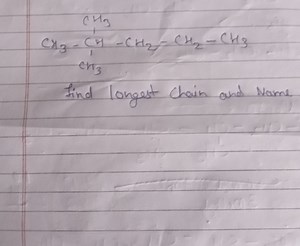 CH3
CH3 - CH - CH2 - CH2 - CH3
CH3
find longest chain and Name